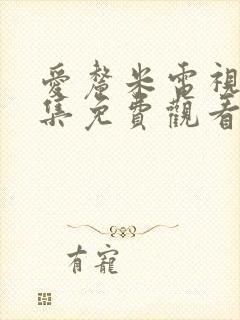 愛釐米電視
集免費觀看
有寵